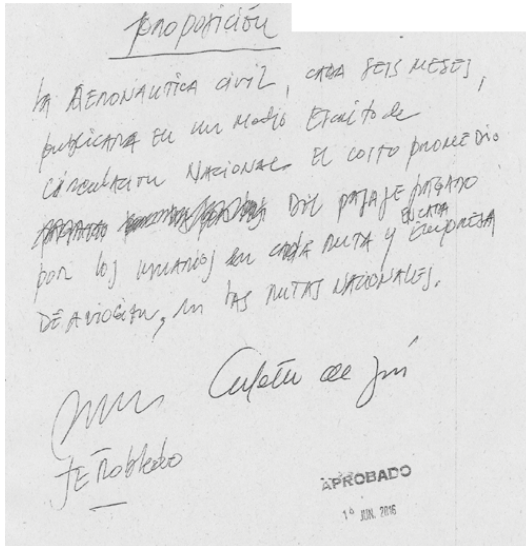 proposición
La Aeronautica civil, cada seis meses,
publicará en un medio Escrito de
circulación Nacional El costo promedio
del pasaje pagado
por los usuarios en cada ruta y en cada empresa
DE aviación, en las rutas nacionales.
JE Robledo
APROBADO
JUN. 2016